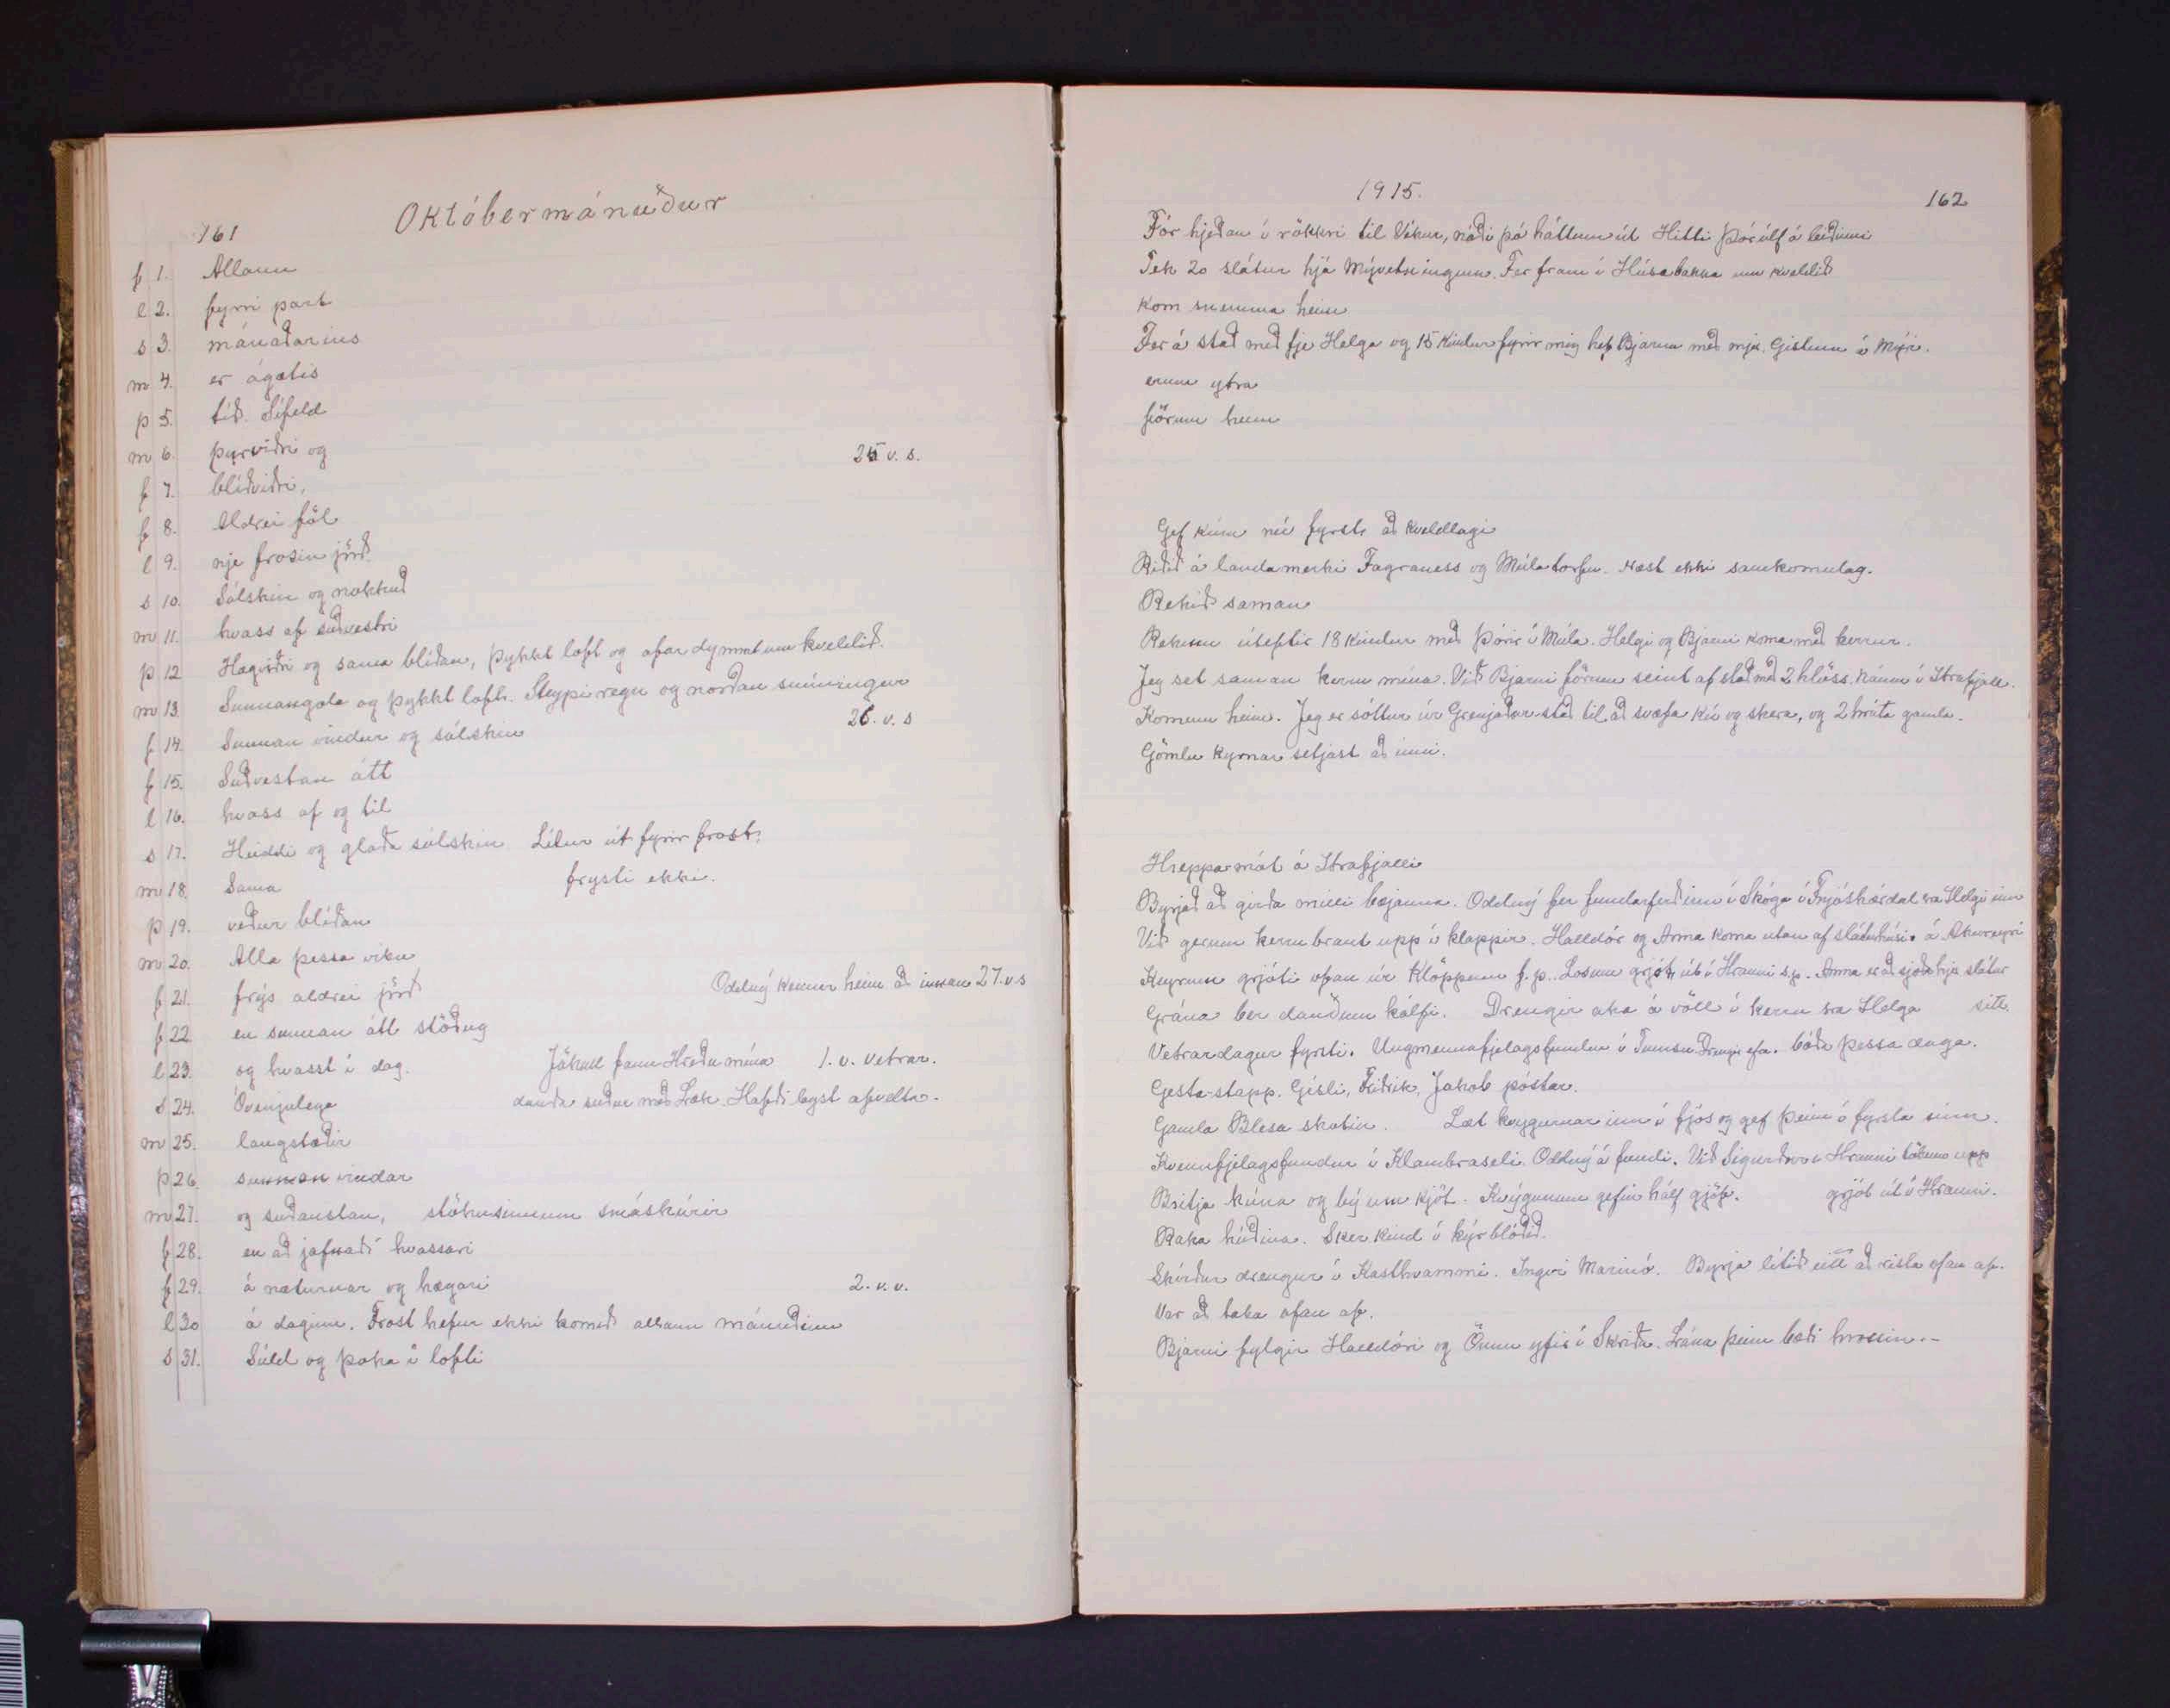 161
Októbermánuður
f 1. Allann
l 2. fyrri part
s 3. mánaðarins
m 4. er ágætis
þ 5. tíð. Sífeld
m 6. þurviðri og 25 v. s.
f 7. blíðviðri,
f 8. Aldrei föl
l 9. nje frosin jörð
s 10. Sólskin og nokkuð
m 11. hvass af suðvestri
þ 12 Hægviðri og sama blíðan, þykkt loft og afar dymmt um kveldið.
m 13. Sunnangola og þykkt loft. Steypiregn og norðan snúningur
f 14. Sunnan vindur og sólskin 26. v. s
f 15. Suðvestan átt
l 16. hvass af og til
s 17. Heiddi og glaða sólskin Lítur út fyrir frost,
m 18. Sama frysti ekki.
þ 19. veður blíðan
m 20. Alla þessa viku
f 21. frýs aldrei jörð Oddný kemur heim að innan 27. v. s
f 22. en sunnan átt stöðug
l 23. og hvasst í dag. Jökull fann Hreðu mína 1. v. vetrar.
s 24. Óvenjulega dauða suður með Læk. Hafði legst afvelta.
m 25. langstæðir
þ 26. sunnan vindar
m 27. og suðaustan, stökusinnum smáskúrir
f 28. en að jafnaði hvassari
f 29. á næturnar og hægari 2. v. v.
l 30 á daginn. Frost hefur ekki komið allann mánuðinn
s 31. Súld og þoka í lofti
1915.
162
Fór hjeðan í rökkri til Víkur, náði þá háttum út Hitti Þórólf á leiðinni
Tek 20 slátur hjá Mývetningum. Fer fram í Húsabakka um kveldið
Kom snemma heim
Fer á stað með fje Helga og 15 kindur fyrir mig hef Bjarna með mjer. Gistum á Mýri.
erum ytra
förum heim
Gef kúm nú fyrst að kveldlagi
Riðið á landamerki Fagraness og Múlatorfu. Næst ekki samkomulag.
Rekið saman
Rekum úteftir 18 kindur með Þórir í Múla. Helgi og Bjarni koma með kerrur.
Jeg set saman kerru mína. Við Bjarni förum seint af stað með 2 hlöss. Náum í Ytrafjall.
Komum heim. Jeg er sóttur úr Grenjaðarstað til að svæfa kú og skera, og 2 hrúta gamla.
Gömlu kyrnar setjast að inni.
Hreppamót á Ytrafjalli
Byrjað að girða milli bæjanna. Oddný fer fundarferð inn í Skóga í Fnjóskárdal Helgi inn
Við gerum kerrubraut upp í klappir. Halldór og Anna koma utan af sláturhúsi á Akureyri
Keyrum grjóti ofan úr Klöppum f. p. Losum grjót út í Hrauni s. p. Anna er að sjóða hjer slátur
Grána ber dauðum kálfi. Drengir aka á völl í kerru Helga sitt.
Vetrardagur fyrsti. Ungmennafjelagsfundur í Tumsu. báða þessa daga.
Gesta-stapp. Gísli, Friðrik, Jakob póstar.
Gamla Blesa skotin. Læt kvygurnar inn í fjós og gef þeim í fyrsta sinn.
Kvennfjelagsfundur í Klambraseli. Oddný á fundi. Við Sigurður í Hrauni tökum upp
Britja kúna og bý um kjöt. Kvýgunum gefin hálf gjöf. grjót út í Hrauni.
Raka húðina. Sker kind í kýrblóðið.
Skírður drengur í Kasthvammi. Ingvi Marinó. Byrja lítið eitt að rista ofan af.
Var að taka ofan af.
Bjarni fylgir Halldóri og Önnu yfir í Skriðu. Lána þeim bæði hrossin.-